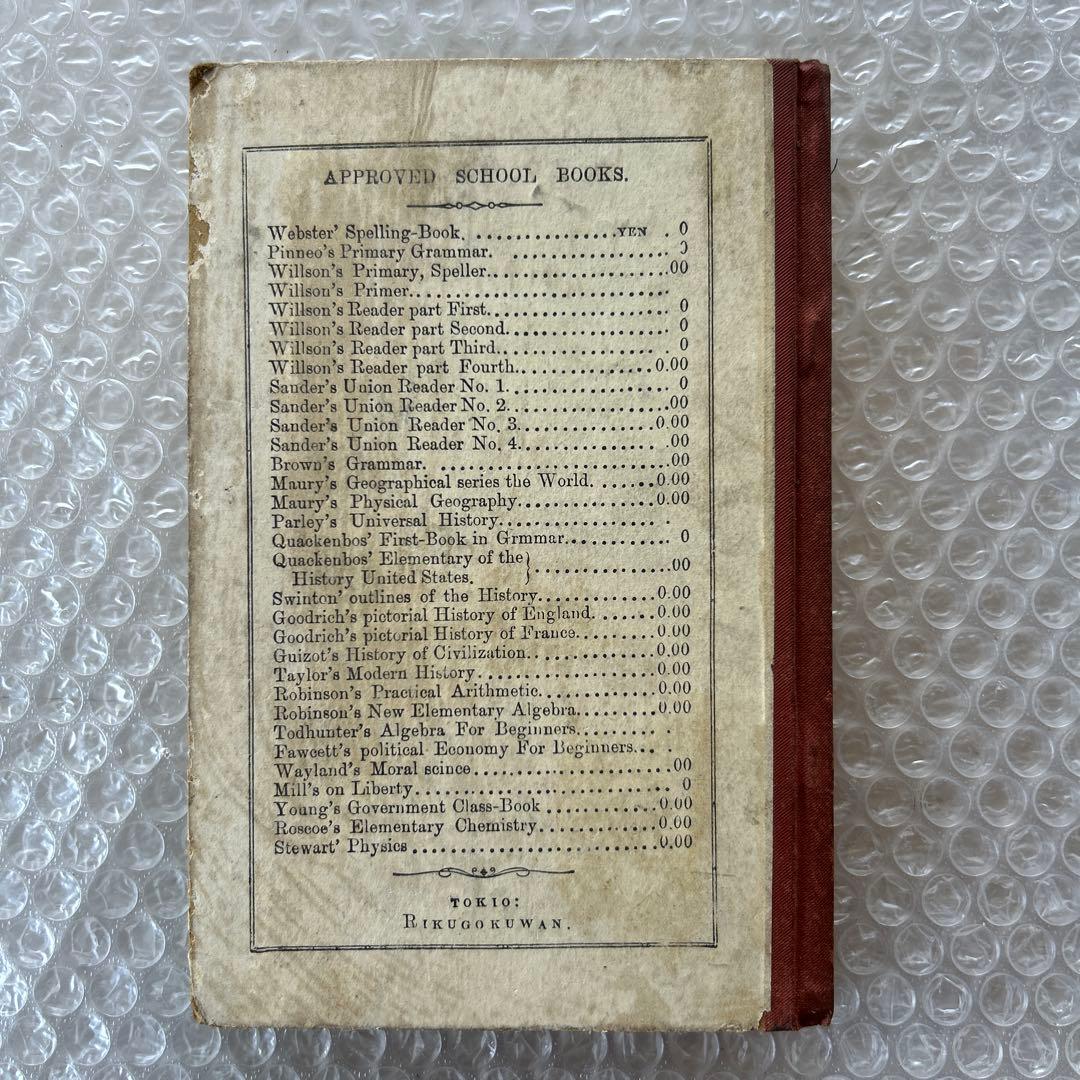 APPROVED SCHOOL BOOKS.
Webster' Spelling-Book. ................YEN . 0
Pinneo's Primary Grammar. 0
Willson's Primary, Speller..........................00
Willson's Primer.....................................
Willson's Reader part First.......................... 0
Willson's Reader part Second....................... 0
Willson's Reader part Third..................... . 0
Willson's Reader part Fourth....................0.00
Sander's Union Reader No. 1..................... 0
Sander's Union Reader No. 2.......................00
Sander's Union Reader No. 3...................0.00
Sander's Union Reader No. 4.................... .00
Brown's Grammar. ................................00
Maury's Geographical series the World. .......0.00
Maury's Physical Geography....................0.00
Parley's Universal History..................... .
Quackenbos' First-Book in Grmmar............ 0
Quackenbos' Elementary of the
History United States. } ...................00
Swinton' outlines of the History................0.00
Goodrich's pictorial History of England. .......0.00
Goodrich's pictorial History of France..........0.00
Guizot's History of Civilization.. .............0.00
Taylor's Modern History.......................0.00
Robinson's Practical Arithmetic................0.00
Robinson's New Elementary Algebra..........0.00
Todhunter's Algebra For Beginners......... .
Fawcett's political Economy For Beginners... .
Wayland's Moral scince..........................00
Mill's on Liberty................................. 0
Young's Government Class-Book ..............0.00
Roscoe's Elementary Chemistry................0.00
Stewart' Physics ................................0.00
TOKIO:
RIKUGOKUWAN.